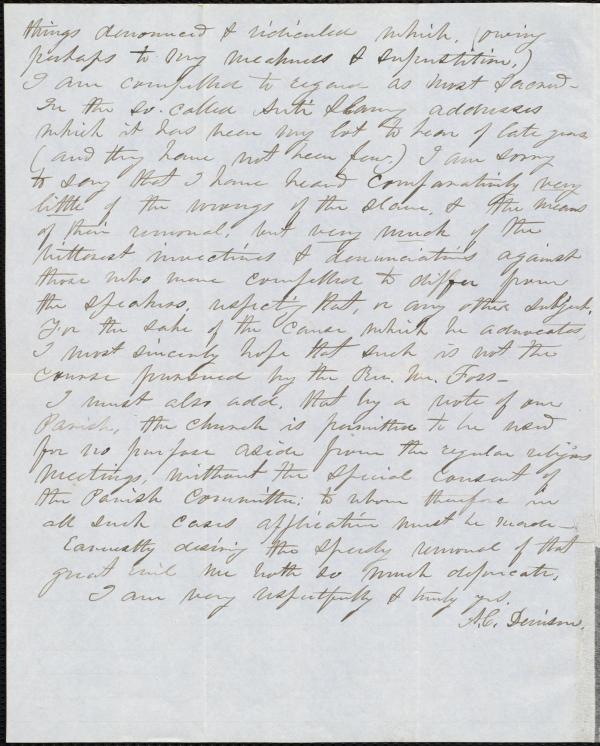 things denounced & ridiculed which, (owing
perhaps to my weakness & superstition,)
I am compelled to regard as most Sacred-
In the so-called Anti Slavery addresses
which it has been my lot to hear of late years
(and they have not been few.) I am sorry
to say that I have heard comparatively very
little of the wrongs of the slave, & the means
of their removal, but very much of the
bitterest invectives & denunciations against
those who were compelled to differ from
the speakers, respecting that, or any other subject.
For the sake of the cause which he advocates,
I most sincerely hope that such is not the
course pursued by the Rev. Mr. Foss-
I must also add, that by a vote of our
Parish, the church is permitted to be used
for no purpose aside from the regular religious
meetings, without the special consent of
the Parish Committee: to whom therefore in
all such cases application must be made-
Earnestly desiring the speedy removal of that
great evil we both so much deprecate,
I am very respectfully & truly yrs.
A.C. Denison.